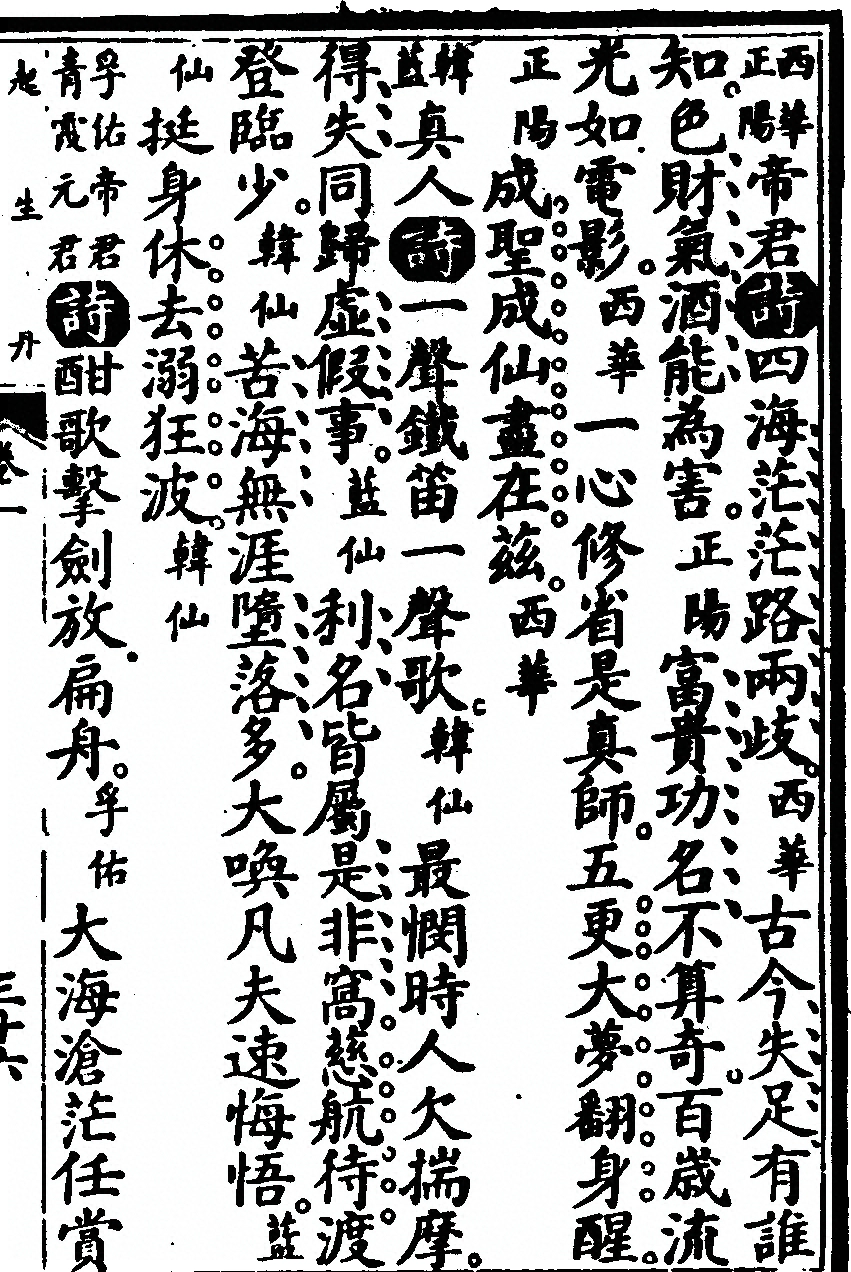 西華正陽帝君詩四海茫茫路兩歧西華古今失足有誰
知色財氣酒能為害正陽富貴功名不算奇百歲流
光如電影西華一心修省是真師五更大夢翻身醒
正陽成聖成仙盡在茲西華
韓藍真人詩一聲鐵笛一聲歌韓仙最憫時人欠揣摩
得失同歸虛假事藍仙利名皆屬是非窩慈航待渡
登臨少韓仙苦海無涯墮落多大喚凡夫速悔悟藍
仙挺身休去溺狂波韓仙
孚佑帝君青霞元君詩酣歌擊劍放扁舟孚佑大海滄茫任賞
生 丹
卷一
三十六